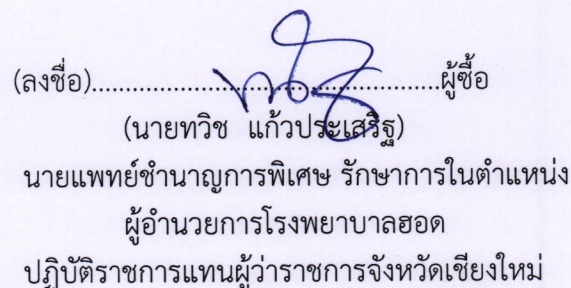 (ลงชื่อ)....................................................ผู้ซื้อ
(นายทวิช แก้วประเสริฐ)
นายแพทย์ชำนาญการพิเศษ รักษาการในตำแหน่ง
ผู้อำนวยการโรงพยาบาลฮอด
ปฏิบัติราชการแทนผู้ว่าราชการจังหวัดเชียงใหม่